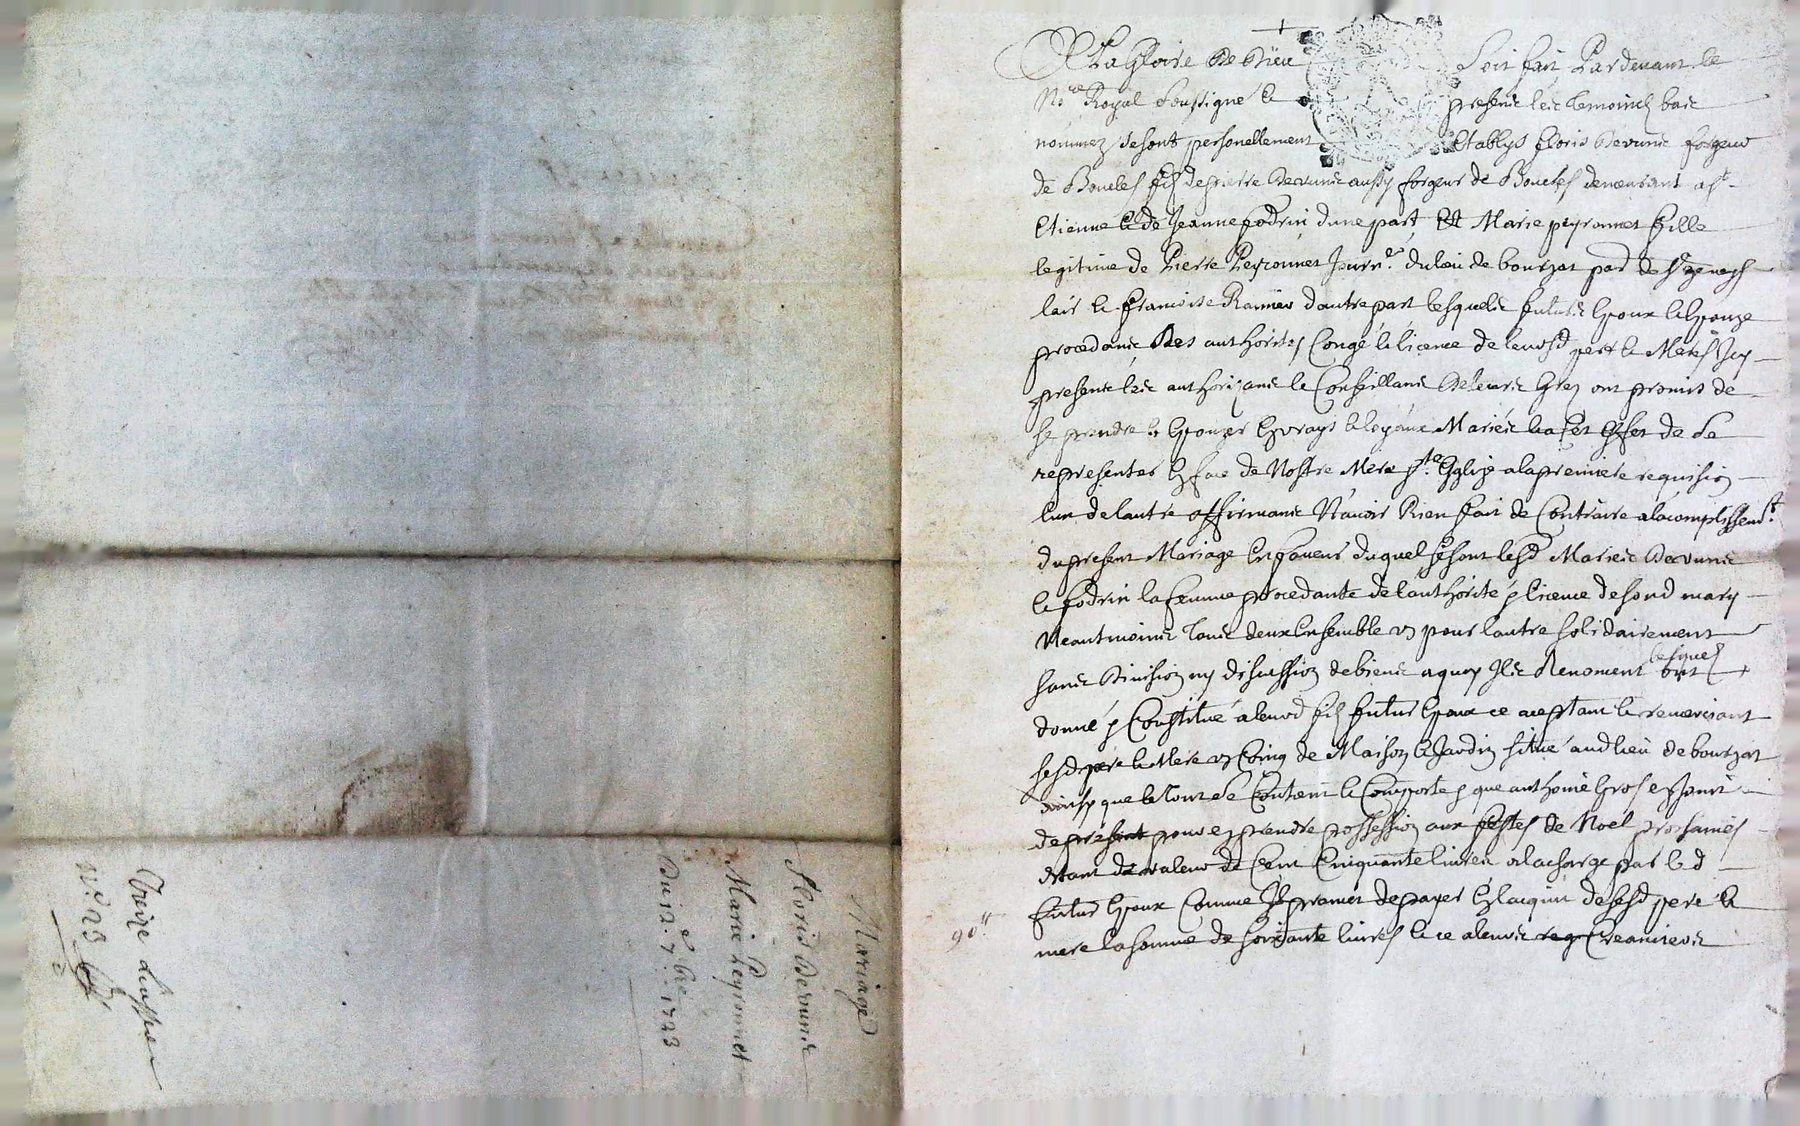 Mariage
Floris Devunis
Marie Peyronnet
Du 12e 7bre 1723
n° 23
A La Gloire De Dieu Soit fait Pardevant le
Nre Royal Soussigné & presents les temoins bas
nommez se sont personellement Etablys floris Devunis forgeur
de Boucles fils de pierre Devunis aussy forgeur de Boucles demeurant a St
Etienne & de Jeanne fodrin dune part Et Marie peyronnet fille
legitime de Pierre Peyronnet Journr du lieu de bourzat par de St genest
lair & francoise Ranner dautre part lesquels futurs Epoux & Epouze
procedans des authorites Congé & licence de leursd pere & Meres Icy
presents les authorizans & Conseillans de leurs grez ont promis de
se prendre & Epouzer En vrays & loyaux Mariés & a cet Effet de se
representer En face de Nostre Mere Ste Eglize a la premiere requision
lun de lautre affirmants Navoir Rien fait de Contraire a lacomplissemt
du present Mariage En faveur duquel se sont lesd Mariés Devunis
& fodrin la femme procedante de lauthorité & licence de sond mary
Neantmoins tous deux Ensemble un pour lautre solidairement
sans Division ny discussion de biens a quoy Ils Renoncent lesquels ont
donné & Constitué a leurd fils futur Epoux ce aceptant & remerciant
sesd pere & Mere un Coing de Maison & Jardin situé aud lieu de bourzat
ainsy que le tout se Contient & Comporte & que anthoine Gros en Jouit
de present pour en prendre possession aux festes de Noel prochaines
Etant de valeur de Cent Cinquante livres a la charge par led
futur Epoux Comme Il promet de payer En lacquit de sesd pere &
90ll mere la somme de soixante livres & ce a leurs Creanciers